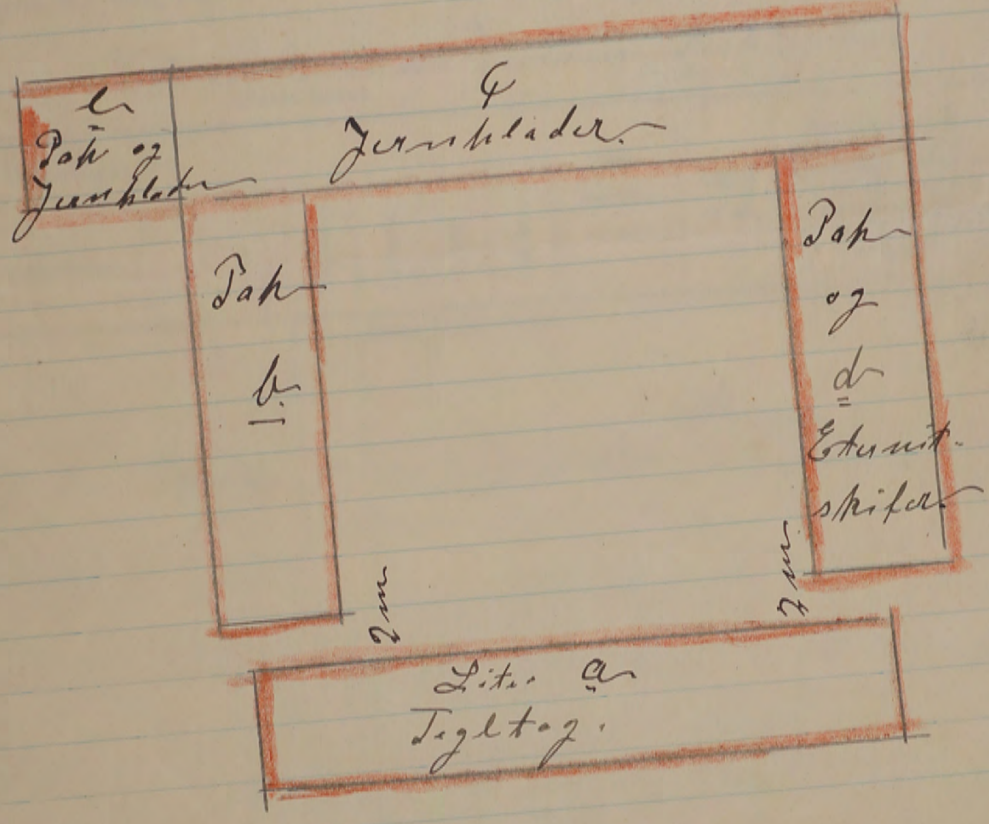 e
Pap og
Jernplader
c
Jernplader.
Pap
b.
Pap
og
d
Eternit-
skifer
7 m
7 m
Litr. a
Tegltag.